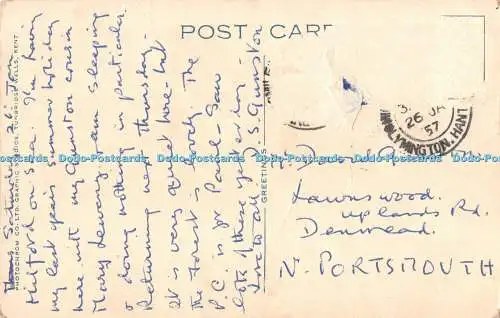 POST CARD
Thurs Saturday 26. Jan
Milford on Sea. I'm having
my last years summer holiday
here with my Gunston cousin
Mary Lewary. I am sleeping
& doing nothing in particular.
Returning next Thursday.
It is very quiet here - but
the Forest is lovely. The
P.C. is for Paul - Saw
lots of these yesterday -
Love to all D.S. Gunston
PHOTOCHROM CO. LTD. GRAPHIC STUDIOS, TUNBRIDGE WELLS, KENT
GREETINGS
26 JA
57
LYMINGTON. HANT
Lawnswood.
uplands Rd.
Denmead.
N. PORTSMOUTH
Dodo-Postcards Dodo-Postcards Dodo-Postcards Dodo-Postcards Dodo-Postcards